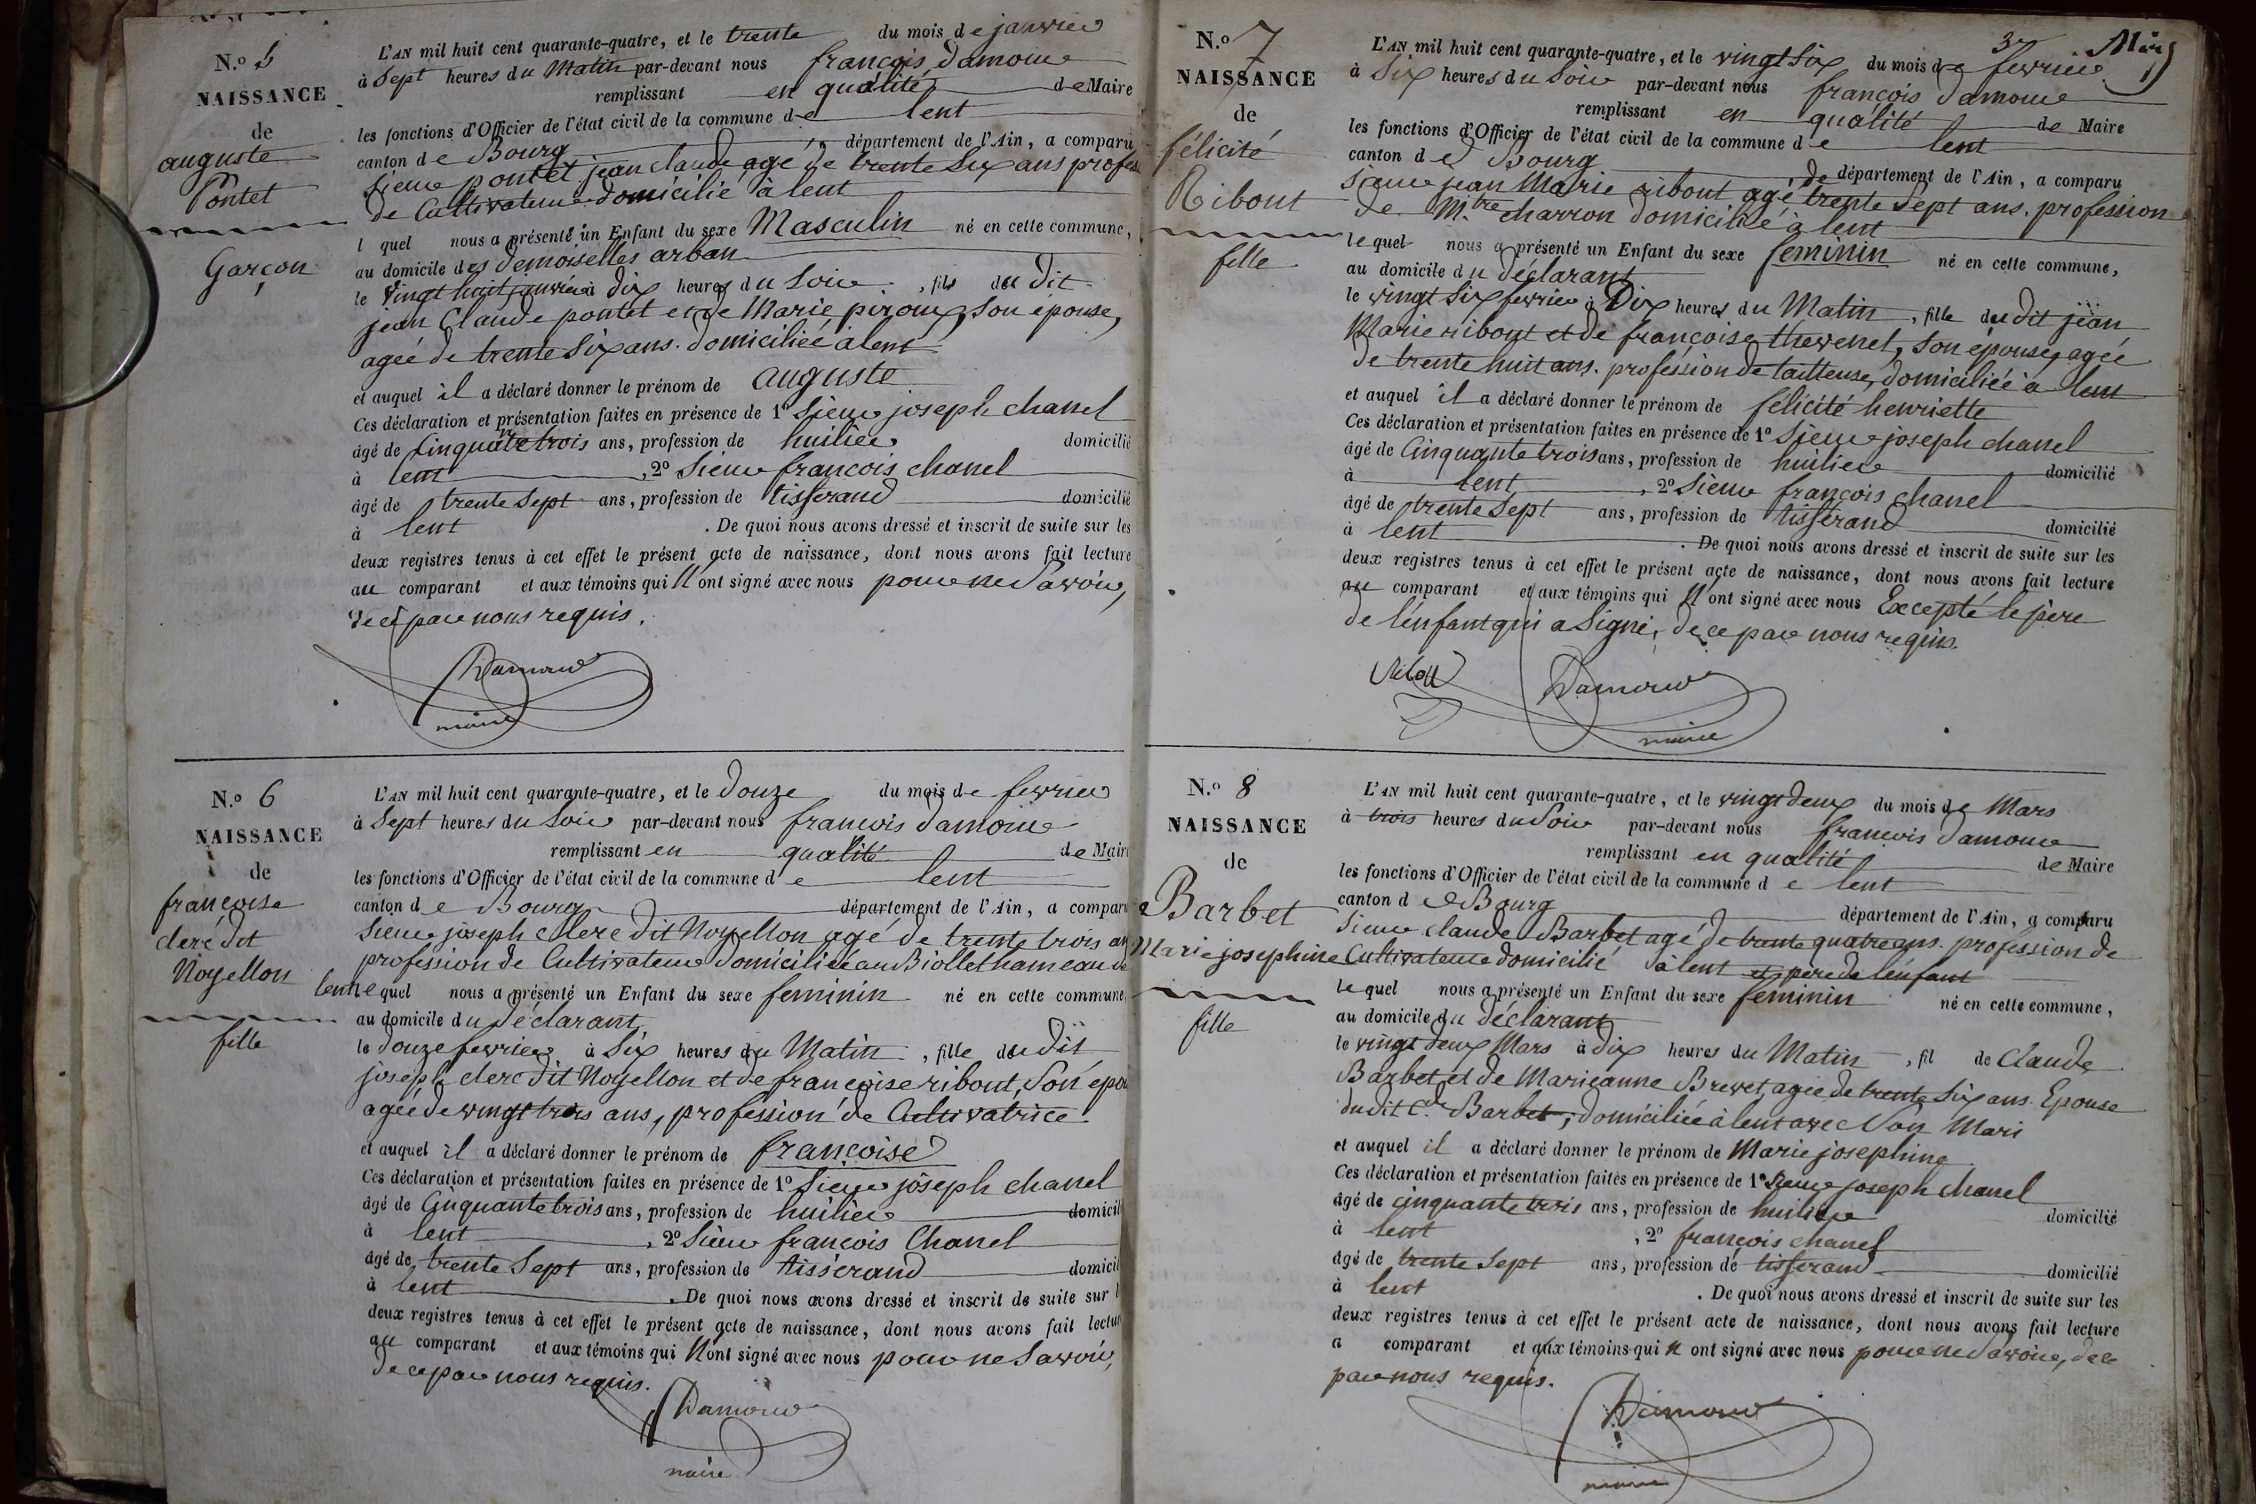 N.º 5
NAISSANCE
de
auguste
Pontet
Garçon
L'AN mil huit cent quarante-quatre, et le trente du mois de janvier
à Sept heures du Matin par-devant nous françois damour
remplissant en qualité de Maire
les fonctions d'Officier de l'état civil de la commune de lent
canton de Bourg département de l'Ain, a comparu
Sieur pontet jean claude agé de trente Six ans profes
de Cultivateur domicilié à lent
l quel nous a présenté un Enfant du sexe Masculin né en cette commune,
au domicile des demoiselles arban
le Vingt huit janvier à dix heures du Soir, fils du dit
jean Claude pontet et de Marie piroux, Son épouse,
agée de trente Six ans. domiciliée à lent
et auquel il a déclaré donner le prénom de auguste
Ces déclaration et présentation faites en présence de 1º Sieur joseph chanel
âgé de Cinquante trois ans, profession de huilier domicilié
à lent, 2º Sieur françois chanel
âgé de trente Sept ans, profession de tisserand domicilié
à lent. De quoi nous avons dressé et inscrit de suite sur les
deux registres tenus à cet effet le présent acte de naissance, dont nous avons fait lecture
au comparant et aux témoins qui N'ont signé avec nous pour ne Savoir,
de ce par nous requis.
Damour
maire
N.º 6
NAISSANCE
de
françoise
clerc dit
Noyellon
fille
L'AN mil huit cent quarante-quatre, et le douze du mois de fevrier
à Sept heures du Soir par-devant nous francois damour
remplissant en qualité de Maire
les fonctions d'Officier de l'état civil de la commune de lent
canton de Bourg département de l'Ain, a comparu
Sieur joseph clerc dit Noyellon agé de trente trois an
profession de Cultivateur domiciliée au Biollet hameau de
lent le quel nous a présenté un Enfant du sexe feminin né en cette commune,
au domicile du déclarant,
le douze fevrier à Six heures du Matin, fille du dit
joseph clerc dit Noyellon et de françoise ribout, Son épou
agée de vingt trois ans, profession de Cultivatrice
et auquel il a déclaré donner le prénom de françoise
Ces déclaration et présentation faites en présence de 1º Sieur joseph chanel
âgé de Cinquante trois ans, profession de huilier domicil
à lent, 2º Sieur françois Chanel
âgé de trente Sept ans, profession de tisserand domicil
à lent. De quoi nous avons dressé et inscrit de suite sur l
deux registres tenus à cet effet le présent acte de naissance, dont nous avons fait lectur
au comparant et aux témoins qui N'ont signé avec nous pour ne Savoir,
de ce par nous requis.
Damour
maire
37
N.º 7
NAISSANCE
de
félicité
Ribout
fille
L'AN mil huit cent quarante-quatre, et le vingt Six du mois de fevrier
à Six heures du Soir par-devant nous françois damour
remplissant en qualité de Maire
les fonctions d'Officier de l'état civil de la commune de lent
canton de Bourg, de département de l'Ain, a comparu
Sieur jean Marie ribout agé trente Sept ans. profession
de M.tre charron domicilié à lent
le quel nous a présenté un Enfant du sexe feminin né en cette commune,
au domicile du déclarant
le vingt Six fevrier à Dix heures du Matin, fille du dit jean
Marie ribout et de françoise thevenet, Son épouse, agée
de trente huit ans. profession de tailleuse, domiciliée à lent
et auquel il a déclaré donner le prénom de félicité henriette
Ces déclaration et présentation faites en présence de 1º Sieur joseph chanel
âgé de Cinquante trois ans, profession de huilier domicilié
à lent, 2º Sieur françois chanel
âgé de trente Sept ans, profession de tisserand domicilié
à lent. De quoi nous avons dressé et inscrit de suite sur les
deux registres tenus à cet effet le présent acte de naissance, dont nous avons fait lecture
au comparant et aux témoins qui N'ont signé avec nous Excepté le père
de l'énfant qui a Signé, de ce par nous requis.
Damour
maire
N.º 8
NAISSANCE
de
Barbet
Marie josephine
fille
L'AN mil huit cent quarante-quatre, et le vingt deux du mois de Mars
à trois heures du Soir par-devant nous francois damour
remplissant en qualité de Maire
les fonctions d'Officier de l'état civil de la commune de lent
canton de Bourg département de l'Ain, a comparu
Sieur claude Barbet agé de trente quatre ans. profession de
Cultivateur domicilié à lent et père de l'énfant
le quel nous a présenté un Enfant du sexe feminin né en cette commune,
au domicile du déclarant
le vingt deux Mars à dix heures du Matin, fil de Claude
Barbet et de Marieanne Brevet, agée de trente Six ans. Epouse
du dit C.de Barbet, domiciliée à lent avec Son Mari
et auquel il a déclaré donner le prénom de Marie josephine
Ces déclaration et présentation faites en présence de 1º Sieur joseph chanel
âgé de cinquante trois ans, profession de huilier domicilié
à lent, 2º françois chanel
âgé de trente Sept ans, profession de tisserand domicilié
à lent. De quoi nous avons dressé et inscrit de suite sur les
deux registres tenus à cet effet le présent acte de naissance, dont nous avons fait lecture
a comparant et aux témoins qui N ont signé avec nous pour ne Savoir, de ce
par nous requis.
Damour
maire